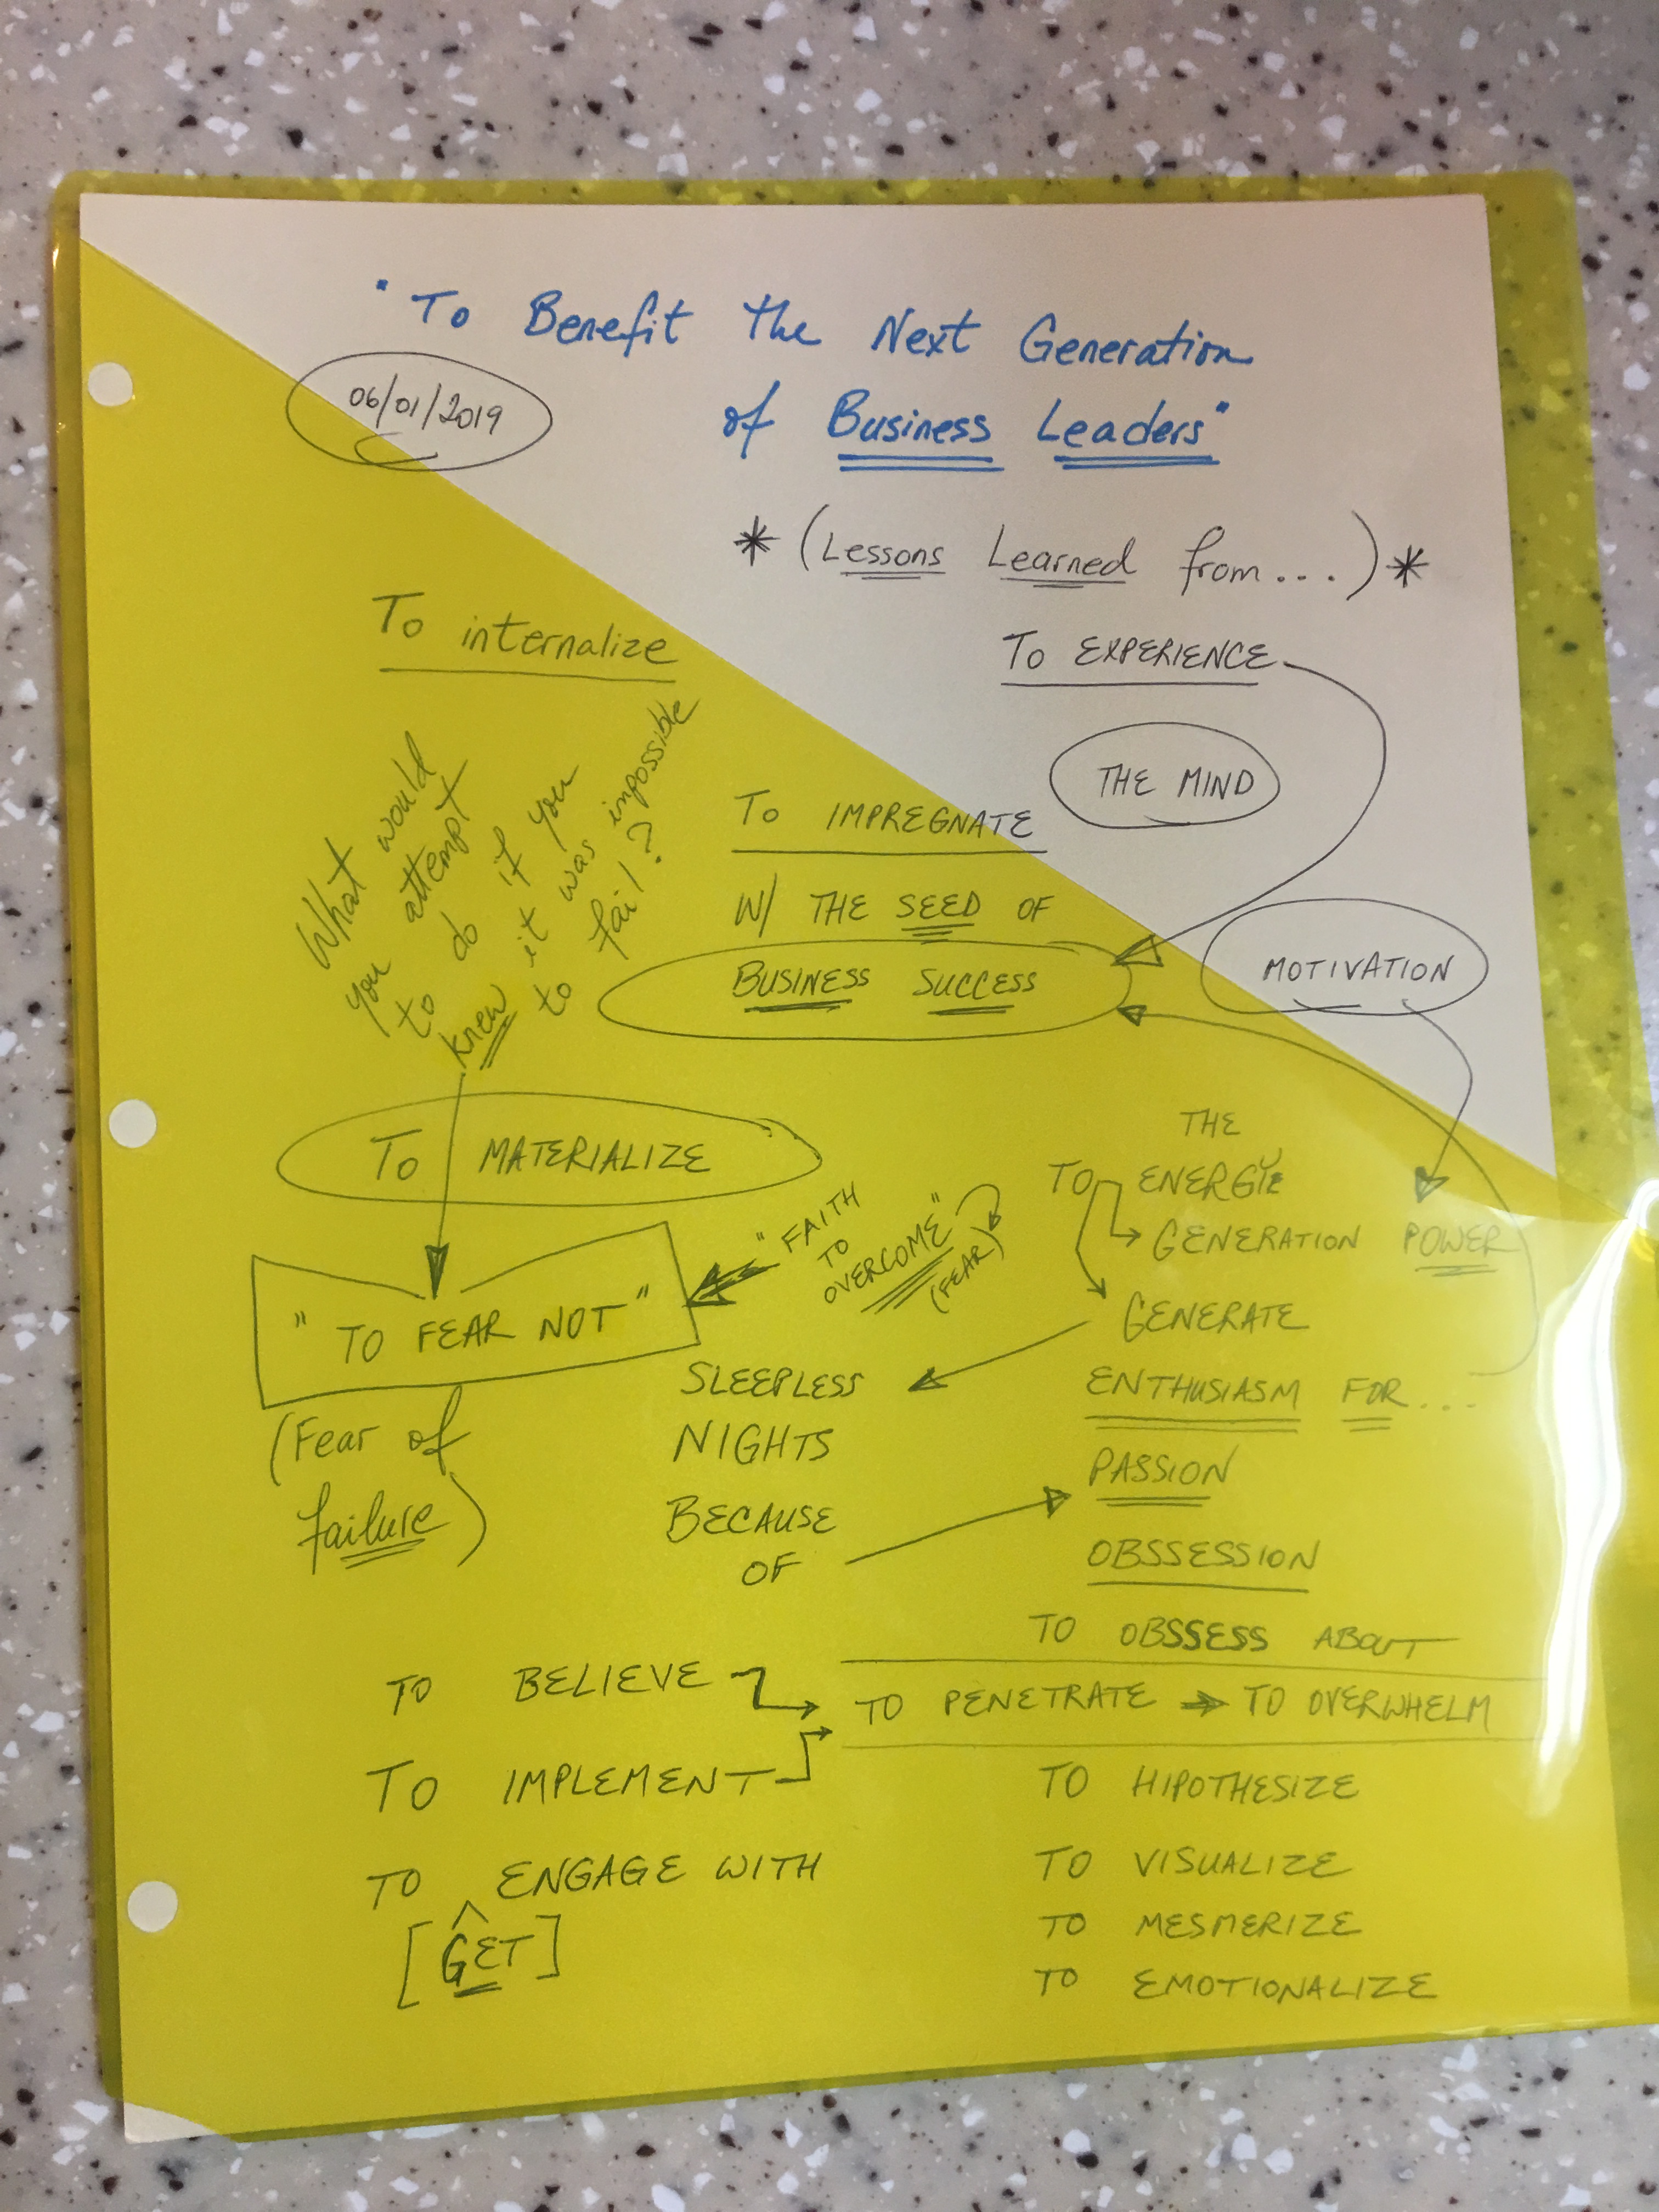 "To Benefit the Next Generation
of Business Leaders"
06/01/2019
* (Lessons Learned from...) *
To internalize
To EXPERIENCE
THE MIND
To IMPREGNATE
W/ THE SEED OF
BUSINESS SUCCESS
MOTIVATION
What would
you attempt
to do if you
knew it was impossible
to fail?
To MATERIALIZE
THE
TO ENERGY
GENERATION POWER
"FAITH
TO
OVERCOME"
(FEAR)
"TO FEAR NOT"
(Fear of
failure)
GENERATE
ENTHUSIASM FOR...
SLEEPLESS
NIGHTS
BECAUSE
OF
PASSION
OBSSESSION
TO OBSSESS ABOUT
TO BELIEVE
TO PENETRATE → TO OVERWHELM
TO IMPLEMENT
TO HIPOTHESIZE
TO ENGAGE WITH
[GET]
TO VISUALIZE
TO MESMERIZE
TO EMOTIONALIZE